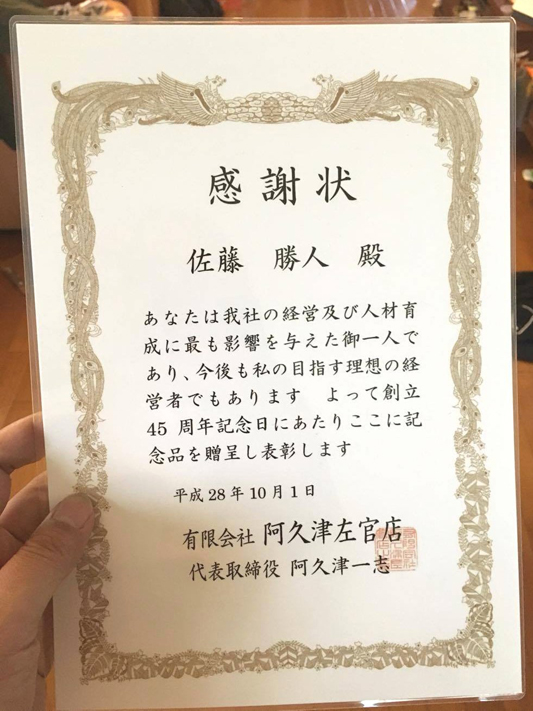 感謝状
佐藤 勝人 殿
あなたは我社の経営及び人材育
成に最も影響を与えた御一人で
あり、今後も私の目指す理想の経
営者でもあります よって創立
45 周年記念日にあたりここに記
念品を贈呈し表彰します
平成 28 年 10 月 1 日
有限会社 阿久津左官店
代表取締役 阿久津一志